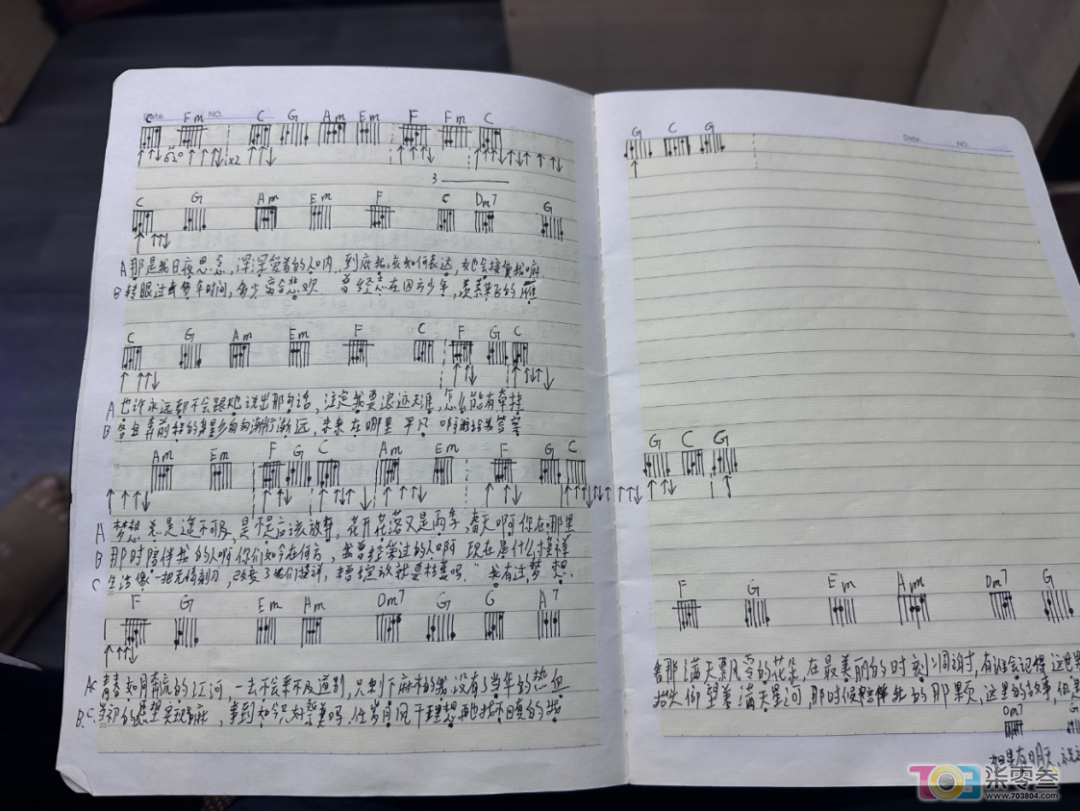 Date. NO.
C Fm C G Am Em F Fm C
6 2 0 ix2
3
C G Am Em F C Dm7 G
A 那是我日夜思念,深深爱着的人啊,到底我该如何表达,她会接受我嘛
B 转眼过 年时间,多少离合悲欢 曾经志在四方少年,羡慕 飞的雁
C G Am Em F C F G C
A 也许永远都不会跟他说出那句话,注定我要浪迹天涯,怎么能有牵挂
B 各自奔前程的身影匆匆渐行渐远,未来在哪里 平凡 啊谁给我答案
Am Em F G C Am Em F G C
A 梦想总是遥不可及,是不是应该放弃,花开花落又是雨季,春天啊你在哪里
B 那时陪伴我的人啊你们如今在何方,我曾经爱过的人啊 现在是什么模样
C 生活像一把无情刻刀,改变了我们模样,未曾绽放就要枯萎吗,我有过梦想
F G Em Am Dm7 G G A7
A 青春如同奔流的江河,一去不会来不及道别,只剩下麻木的我没有了当年的热血
B C 当初的愿望实现 ,事到如今只好祭奠吗,任岁月风干理想再也找不回真的我
Date. NO.
G C G
G C G
F G Em Am Dm7 G
看那满天飘零的花朵,在最美丽的时刻凋谢,有谁会记得这世
抬头仰望着满天星河,那时候陪伴我的那颗,这里的故事,
Dm7 G
如果有明天,
703 柒零叁
www.703804.com